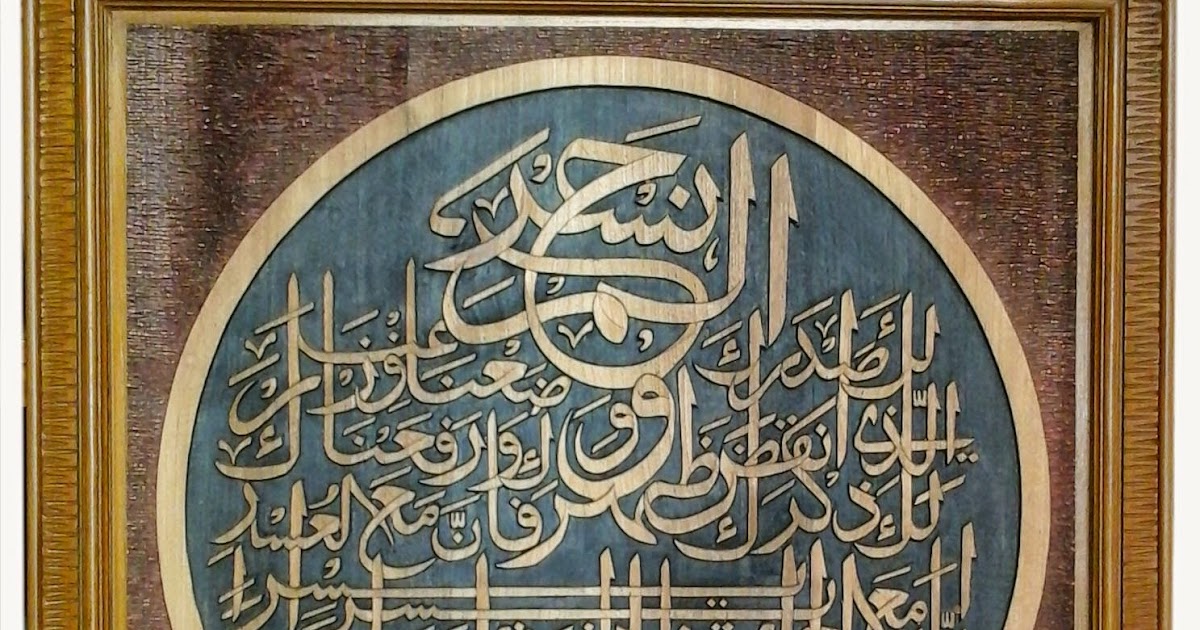 الم نشرح
لك صدرك ووضعنا عنك وزرك
الذي انقض ظهرك ورفعنا
لك ذكرك فإنَّ مع العسر
يسرا
إنَّ مع